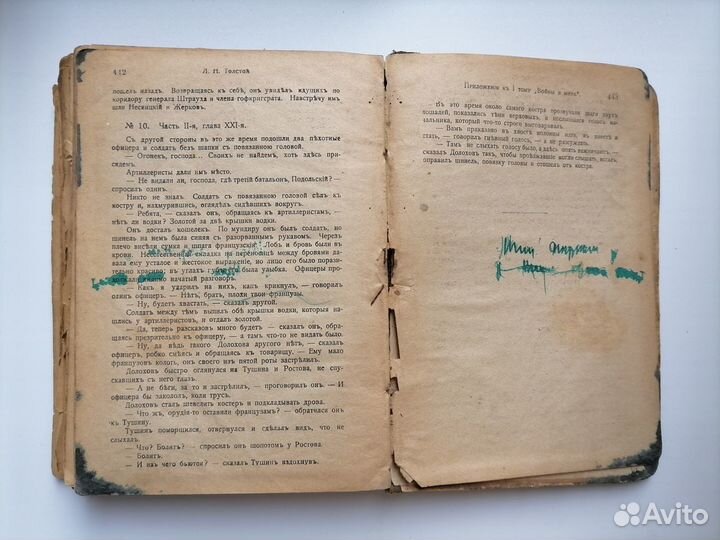 442
Л. Н. Толстой
пошелъ назадъ. Возвращаясь къ себѣ, онъ увидѣлъ идущихъ по
коридору генерала Штрауха и члена гофкригсрата. Навстрѣчу имъ
шли Несвицкій и Жерковъ.
№ 10. Часть II-я, глава XXI-я.
Съ другой стороны въ это же время подошли два пѣхотные
офицера и солдатъ безъ шапки съ повязанною головой.
— Огонекъ, господа... Своихъ не найдемъ, хоть здѣсь при-
сядемъ.
Артиллеристы дали имъ мѣсто.
— Не видали ли, господа, гдѣ третій батальонъ, Подольскій? —
спросилъ одинъ.
Никто не зналъ. Солдатъ съ повязанною головой сѣлъ къ
костру и, нахмурившись, оглядѣлъ сидѣвшихъ вокругъ.
— Ребята, — сказалъ онъ, обращаясь къ артиллеристамъ, —
нѣтъ ли водки? Золотой за двѣ крышки водки.
Онъ досталъ кошелекъ. По мундиру онъ былъ солдатъ, но
шинель на немъ была синяя съ разорваннымъ рукавомъ. Черезъ
плечо висѣли сумка и шпага французская. Лобъ и бровь были въ
крови. Неестественная складка на переносицѣ между бровями да-
вала ему усталое и жестокое выраженіе, но лицо его было порази-
тельно красиво; въ углахъ губъ была улыбка. Офицеры про-
должали начатый разговоръ.
— Какъ я ударилъ на нихъ, какъ крикнулъ, — говорилъ
одинъ офицеръ. — Нѣтъ, братъ, плохи твои французы.
— Ну, будетъ хвастать, — сказалъ другой.
Солдатъ между тѣмъ выпилъ обѣ крышки водки, которыя на-
шлись у артиллеристовъ, и отдалъ золотой.
— Да, теперь разсказовъ много будетъ — сказалъ онъ, обра-
щаясь презрительно къ офицеру, — а тамъ что-то не видать было.
— Ну, да вѣдь такого Долохова другого нѣтъ, — сказалъ
офицеръ, робко смѣясь и обращаясь къ товарищу. — Ему мало
французовъ колоть, онъ своего изъ пятой роты застрѣлилъ.
Долоховъ быстро оглянулся на Тушина и Ростова, не спу-
скавшихъ съ него глазъ.
— А не бѣги, за то и застрѣлилъ, — проговорилъ онъ. — И
офицера бы закололъ, коли трусъ.
Долоховъ сталъ шевелить костеръ и подкладывать дрова.
— Что жъ, орудія-то оставили французамъ? — обратился онъ
къ Тушину.
Тушинъ поморщился, отвернулся и сдѣлалъ видъ, что не
слыхалъ.
— Что? Болитъ? — спросилъ онъ шопотомъ у Ростова.
— Болитъ.
— И изъ чего бьются? — сказалъ Тушинъ вздохнувъ.
Приложенія къ I тому „Войны и мира".
443
Въ это время около самаго костра прозвучали шаги двухъ
лошадей, показались тѣни верховыхъ, и послышался голосъ на-
чальника, который что-то строго выговаривалъ.
— Вамъ приказано въ хвостъ колонны идти, въ хвостъ и
стать, — говорилъ гнѣвный голосъ, — а не разсуждать.
— Тамъ не слыхать голосу было, а здѣсь опять величаютъ, —
сказалъ Долоховъ такъ, чтобы проѣзжавшіе могли слышать, всталъ,
оправилъ шинель, повязку головы и отошелъ отъ костра.
Avito